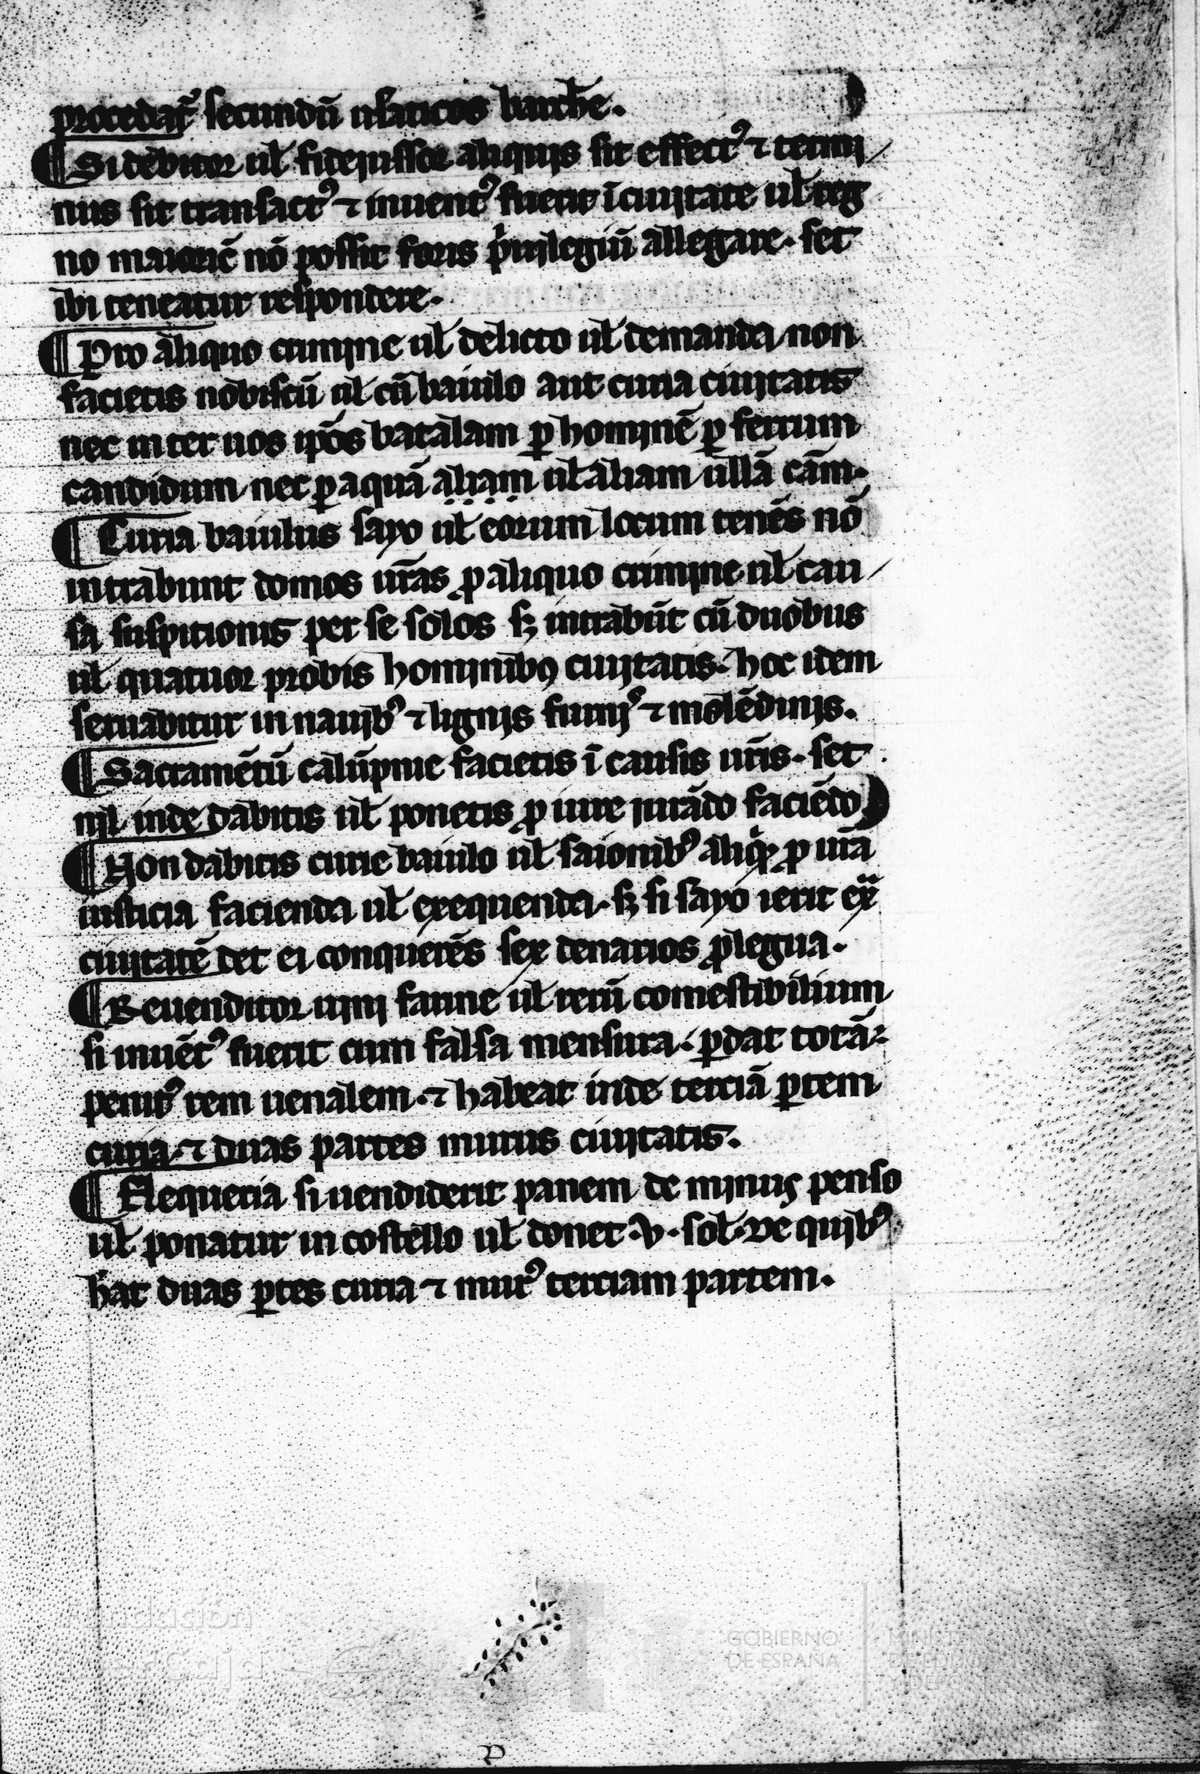 procedat᷑ secundū usaticos barch̄e.
¶ Si debitor ul̄ fideiussor aliquis sit effect᷒ ⁊ termi/
nus sit transact᷒ ⁊ inuent᷒ fuerit ī ciuitate ul̄ reg
no maioric̄ nō possit foris p̓uilegiū allegare. set
ibi teneatur respondere.
¶ Pro aliquo crimine ul̄ delicto ul̄ demanda non
facietis nobiscū ul̄ cū baiulo aut curia ciuitatis
nec inter uos ip̄os batalam ꝑ hominē ꝑ ferrum
candidum nec ꝑ aquā aliam ul̄ aliam ullā cām.
¶ Curia baiulus sayo ul̄ eorum locum tenēs nō
intrabunt domos ur̄as ꝓ aliquo crimine ul̄ cau/
sa suspitionis per se solos sꝫ intrabūt cū duobus
ul̄ quatuor probis hominibꝯ ciuitatis. hoc idem
seruabitur in nauib᷒ ⁊ lignis furnis ⁊ molēdinis.
¶ Sacramētū calūpnie facietis ī causis ur̄is. set
nil inde dabitis ul̄ ponetis ꝓ iure iurādo faciēdo
¶ Non dabitis curie baiulo ul̄ saionib᷒ aliq̓ ꝓ ur̄a
iusticia facienda ul̄ exequenda. sꝫ si sayo ierit ex̄
ciuitatē det ei conquerēs sex denarios ꝓ legua.
¶ Reuenditor uini farine ul̄ rerū comestibilium
si inuēt᷒ fuerit cum falsa mensura. ꝑdat totā
penit᷒ rem uenalem. ⁊ habeat inde terciā ꝑtem
curia. ⁊ duas partes murus ciuitatis.
¶ Flequeria si uendiderit panem de minus penso
ul̄ ponatur in costello ul̄ donet .v. sol̄. de quib᷒
h̄at duas ꝑtes curia ⁊ mur᷒ terciam partem.
Fundación
GOBIERNO
DE ESPAÑA